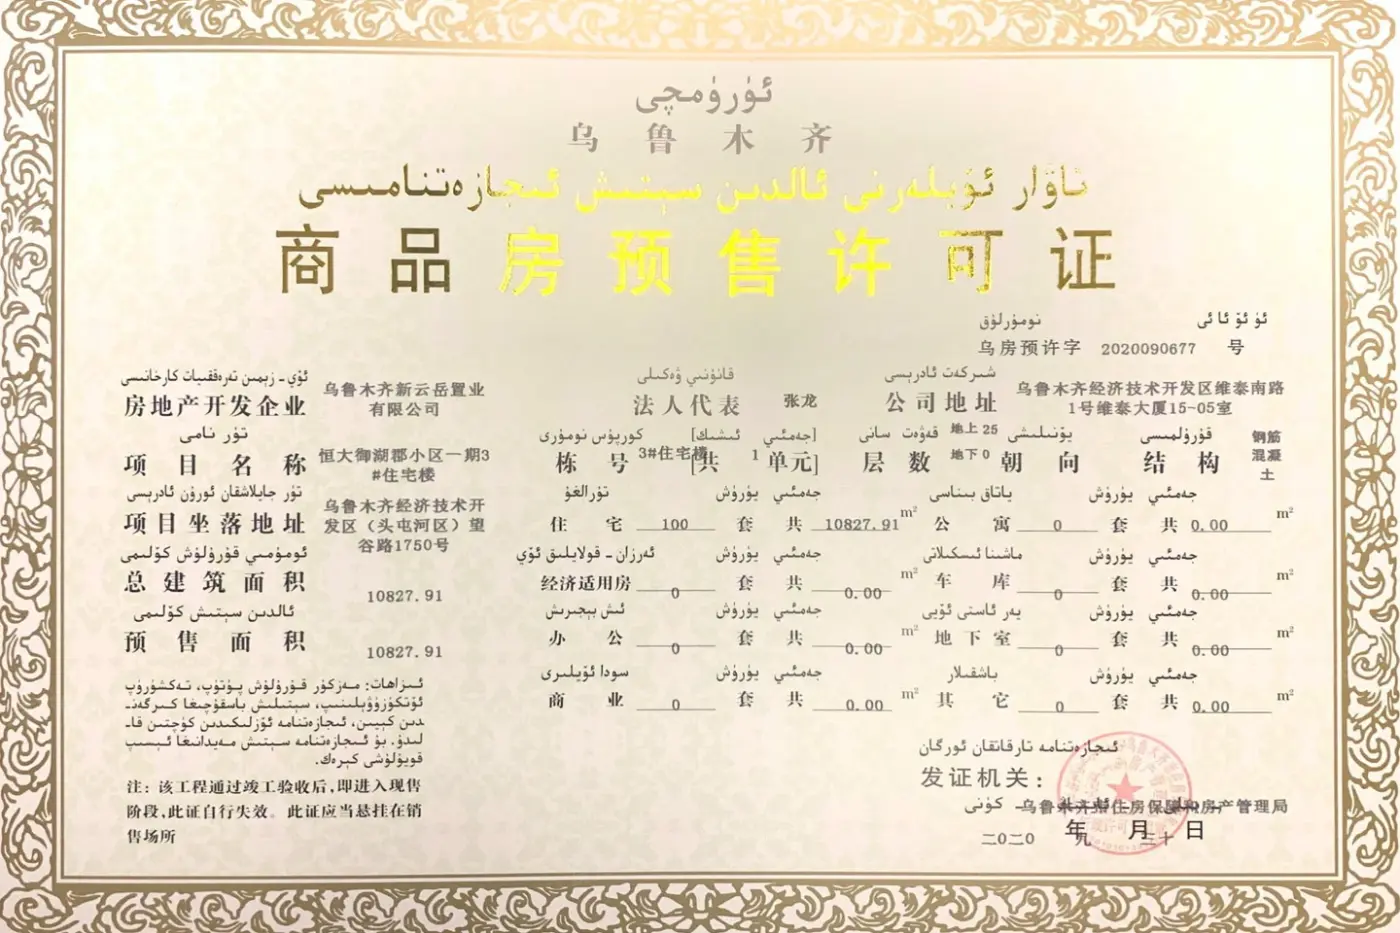 ئۈرۈمچى
乌鲁木齐
تاۋار ئۆيلەرنى ئالدىن سېتىش ئىجازەتنامىسى
商品房预售许可证
ئۈ ئۆ ئا ئى نومۇرلۇق
乌房预许字 2020090677 号
ئۆي - زېمىن تەرەققىيات كارخانىسى
房地产开发企业
乌鲁木齐新云岳置业
有限公司
قانۇنىي ۋەكىلى
法人代表 张龙
شىركەت ئادرېسى
公司地址
乌鲁木齐经济技术开发区维泰南路
1号维泰大厦15-05室
تۈر نامى
项目名称
恒大御湖郡小区一期3
#住宅楼
كورپۇس نومۇرى [جەمئىي ئىشىك]
栋号 3#住宅楼 [共 1 单元]
قەۋەت سانى
层数 地上 25
地下 0
يۆنىلىشى
朝向
قۇرۇلمىسى
结构
钢筋
混凝
土
تۈر جايلاشقان ئورۇن ئادرېسى
项目坐落地址
乌鲁木齐经济技术开
发区（头屯河区）望
谷路1750号
تۇرالغۇ يۈرۈش جەمئىي
住宅 100 套 共 10827.91 m²
ياتاق بىناسى يۈرۈش جەمئىي
公寓 0 套 共 0.00 m²
ئومۇمىي قۇرۇلۇش كۆلىمى
总建筑面积 10827.91
ئەرزان - قولايلىق ئۆي يۈرۈش جەمئىي
经济适用房 0 套 共 0.00 m²
ماشىنا ئىسكىلاتى يۈرۈش جەمئىي
车库 0 套 共 0.00 m²
ئالدىن سېتىش كۆلىمى
预售面积 10827.91
ئىش بېجىرىش يۈرۈش جەمئىي
办公 0 套 共 0.00 m²
يەر ئاستى ئۆيى يۈرۈش جەمئىي
地下室 0 套 共 0.00 m²
سودا ئۆيلىرى يۈرۈش جەمئىي
商业 0 套 共 0.00 m²
باشقىلار يۈرۈش جەمئىي
其它 0 套 共 0.00 m²
ئىزاھات: مەزكۇر قۇرۇلۇش پۈتۈپ، تەكشۈرۈپ
ئۆتكۈزۈۋېلىنىپ، سېتىلىش باسقۇچىغا كىرگەن-
دىن كېيىن، ئىجازەتنامە ئۆزلىكىدىن كۈچتىن قا-
لىدۇ. بۇ ئىجازەتنامە سېتىش مەيدانىغا ئېسىپ
قويۇلۇشى كېرەك.
注：该工程通过竣工验收后，即进入现售
阶段，此证自行失效。此证应当悬挂在销
售场所
ئىجازەتنامە تارقاتقان ئورگان
发证机关：
乌鲁木齐市住房保障和房产管理局
كۈنى
二〇二〇 年 九 月 三十 日